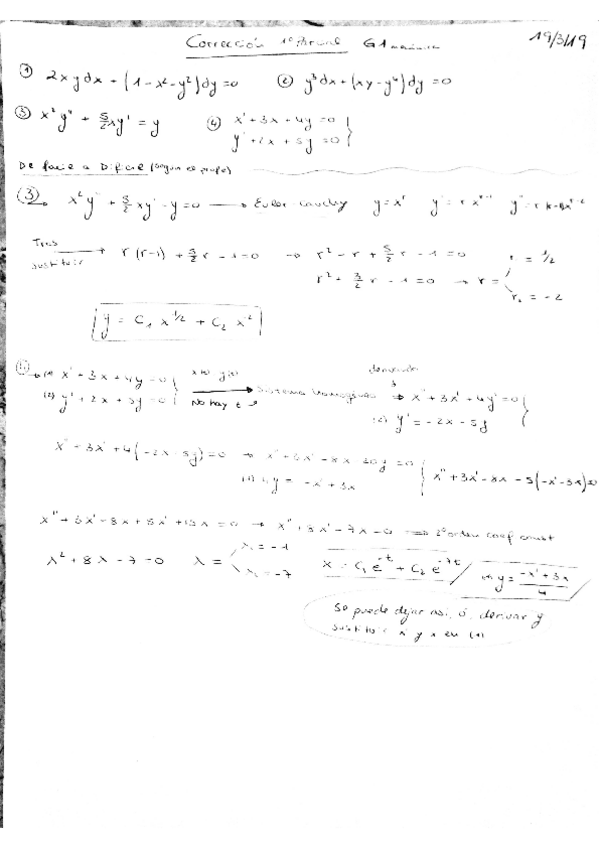 Corrección 1º Parcial G1 19/3/19
① 2xydx + (1-x²-y²)dy = 0 ② y³dx + (xy-y⁴)dy = 0
③ x²y'' + 5/2 xy' = y ④ x' + 3x + 4y = 0
y' + 2x + 5y = 0
De facil a Dificil (según el grupo)
③. x²y'' + 5/2 xy' - y = 0 → Euler Cauchy y = xʳ y' = r xʳ⁻¹
Tras sustituir → r(r-1) + 5/2 r - 1 = 0 → r² - r + 5/2 r - 1 = 0 r = 1/2
r² + 3/2 r - 1 = 0 → r = r₂ = -2
y = C₁ x^1/2 + C₂ x⁻²
→ (1) x' + 3x + 4y = 0 x(t) y(t) derivando
(2) y' + 2x + 5y = 0 No hay t → Sistema homogéneo → x'' + 3x' + 4y' = 0
(2) y' = -2x - 5y
x'' + 3x' + 4(-2x - 5y) = 0 → x'' + 3x' - 8x - 20y = 0
(1) 4y = -x' + 3x x'' + 3x' - 8x - 5(-x' - 3x) = 0
x'' + 3x' - 8x + 5x' + 15x = 0 → x'' + 8x' - 7x = 0 → 2º orden coef const
λ² + 8λ - 7 = 0 λ = λ₁ = -1 λ₂ = -7 x = C₁e⁻ᵗ + C₂e⁻⁷ᵗ / y = (-x' + 3x)/4
Se puede dejar así, ó, derivar y
sustituir x' y x en (1)